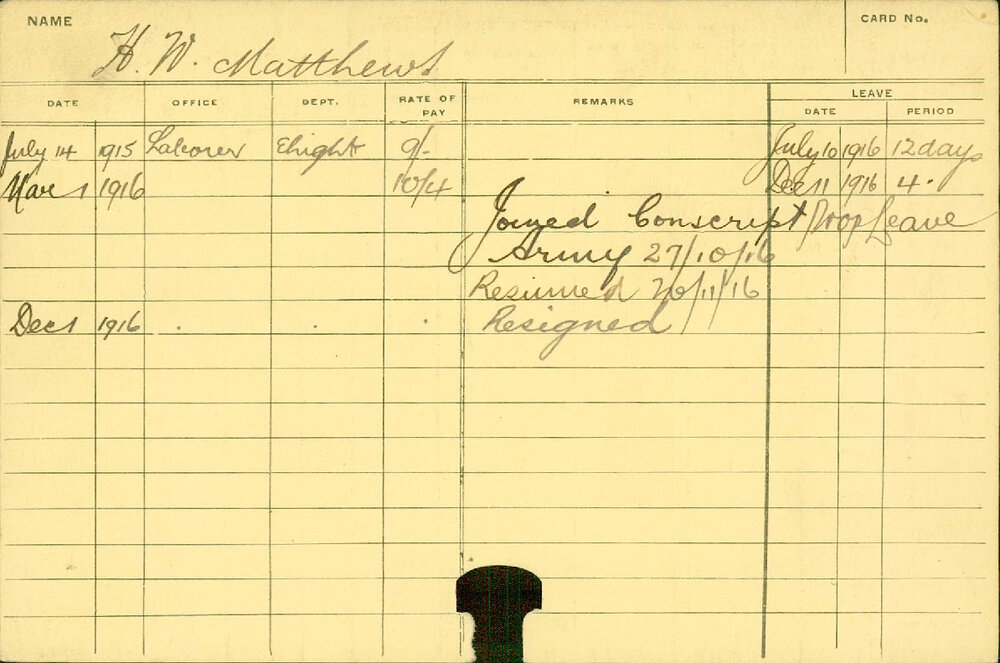 NAME
H. W. Matthews
CARD No.
DATE OFFICE DEPT. RATE OF PAY REMARKS LEAVE
DATE PERIOD
July 14 1915 Laborer Elright 9/- July 10 1916 12 days
Mar 1 1916 10/4 Dec 11 1916 4 "
Joined Conscript Prop Leave
Army 27/10/16
Resumed 20/11/16
Dec 1 1916 . . . Resigned